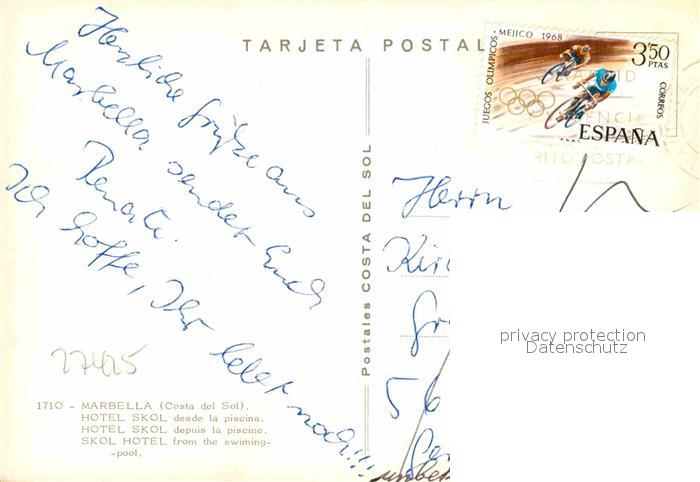 TARJETA POSTAL
JUEGOS OLIMPICOS - MEJICO 1968
3'50
PTAS
CORREOS
ESPAÑA
Herzliche Grüße aus
Marbella sendet Euch
Renate.
Ich hoffe, Ihr lebt noch!!!
Postales COSTA DEL SOL
Herrn
56
privacy protection
Datenschutz
27425
1710 - MARBELLA (Costa del Sol).
HOTEL SKOL desde la piscina.
HOTEL SKOL depuis la piscine.
SKOL HOTEL from the swiming-
-pool.